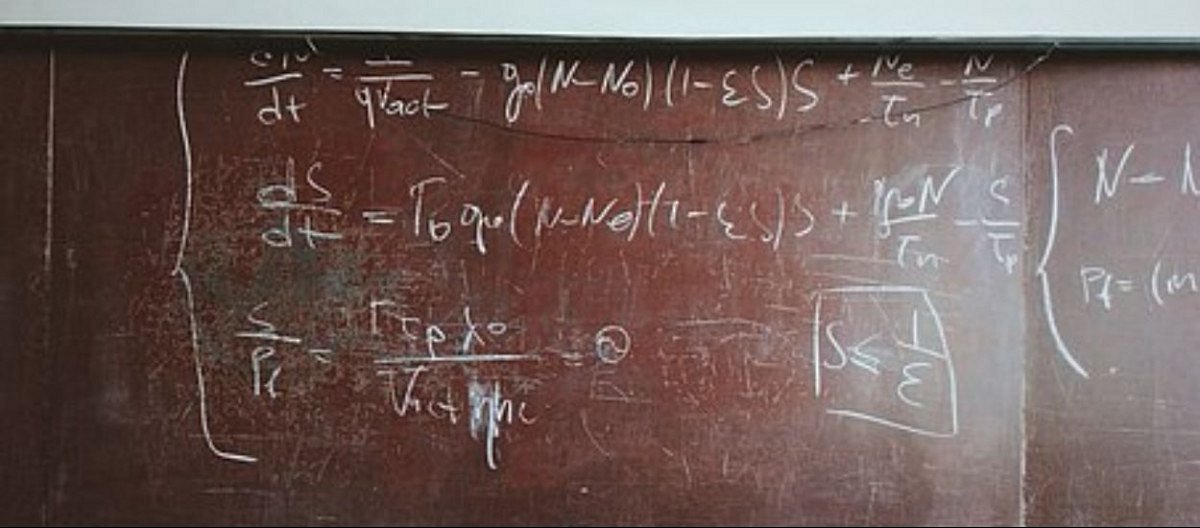 dN/dt = I/qV_act - g_0(N-N_0)(1-εS)S + N_e/τ_n - N/τ_p
dS/dt = Γ_0 g_0(N-N_0)(1-εS)S + N/τ_n - S/τ_p
S/P_f = Γτ_p λ_0/V_act ηhc =
S ≤ 1/ε
N -
P_f = (m